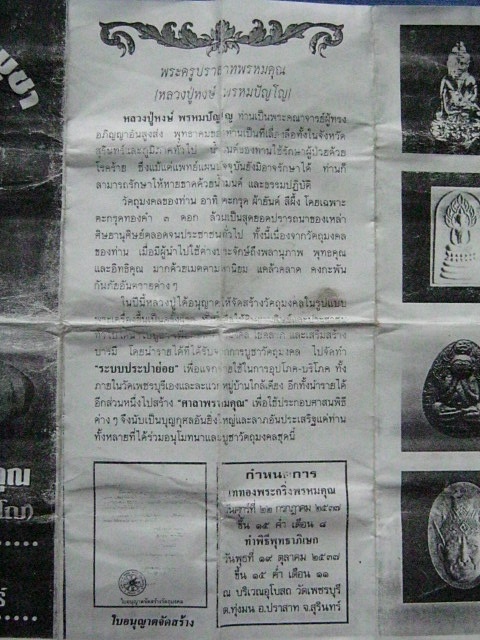 พระครูปราสาทพรหมคุณ
(หลวงปู่หงษ์ พรหมปัญโญ)
หลวงปู่หงษ์ พรหมปัญโญ ท่านเป็นพระคณาจารย์ผู้ทรง
อภิญญาอันสูงส่ง พุทธาคมของท่านเป็นที่เลื่องลือทั้งในจังหวัด
สุรินทร์และภูมิภาคทั่วไป ท่านใช้รักษาผู้ป่วยด้วย
โรคร้าย ซึ่งแม้แต่แพทย์แผนปัจจุบันยังมิอาจรักษาได้ ท่านก็
สามารถรักษาให้หายขาดด้วยน้ำมนต์ และธรรมปฏิบัติ
วัตถุมงคลของท่าน อาทิ ตะกรุด ผ้ายันต์ สีผึ้ง โดยเฉพาะ
ตะกรุดทองคำ ๓ ดอก ล้วนเป็นสุดยอดปรารถนาของเหล่า
ศิษยานุศิษย์ตลอดจนประชาชนทั่วไป ทั้งนี้เนื่องจากวัตถุมงคล
ของท่าน เมื่อมีผู้นำไปใช้ต่างประจักษ์ถึงพลานุภาพ พุทธคุณ
และอิทธิคุณ มากด้วยเมตตามหานิยม แคล้วคลาด คงกะพัน
กันภัยอันตรายต่าง ๆ
ในปีนี้หลวงปู่ได้อนุญาตให้จัดสร้างวัตถุมงคลในรูปแบบ
และเสริมสร้าง
บารมี โดยนำรายได้ที่ได้รับจากการบูชาวัตถุมงคล ไปจัดทำ
"ระบบประปาย่อย" เพื่อแจกจ่ายใช้ในการอุปโภค-บริโภค ทั้ง
ภายในวัดเพชรบุรีเองและละแวกหมู่บ้านใกล้เคียง อีกทั้งนำรายได้
อีกส่วนหนึ่งไปสร้าง "ศาลาพรหมคุณ" เพื่อใช้ประกอบศาสนพิธี
ต่าง ๆ จึงนับเป็นบุญกุศลอันยิ่งใหญ่และลาภอันประเสริฐแด่ท่าน
ทั้งหลายที่ได้ร่วมอนุโมทนาและบูชาวัตถุมงคลชุดนี้
ใบอนุญาตจัดสร้างวัตถุมงคล
ใบอนุญาตจัดสร้าง
กำหนดการ
เททองพระกริ่งพรหมคุณ
วันศุกร์ที่ ๒๒ กรกฎาคม ๒๕๓๗
ขึ้น ๑๕ ค่ำ เดือน ๘
ทำพิธีพุทธาภิเษก
วันพุธที่ ๑๙ ตุลาคม ๒๕๓๗
ขึ้น ๑๕ ค่ำ เดือน ๑๑
ณ บริเวณอุโบสถ วัดเพชรบุรี
ต.ทุ่งมน อ.ปราสาท จ.สุรินทร์